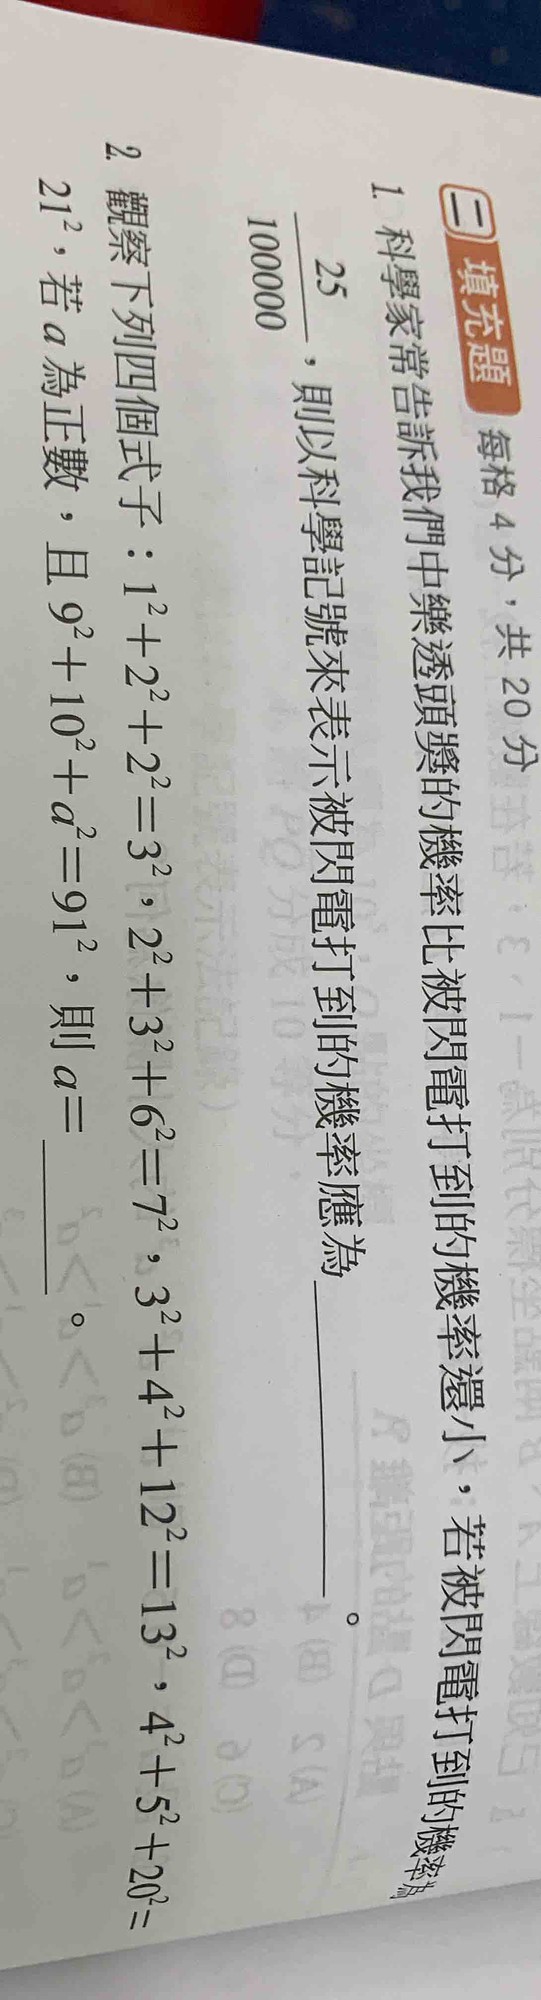 二 填充題 每格 4 分，共 20 分
1. 科學家常告訴我們中樂透頭獎的機率比被閃電打到的機率還小，若被閃電打到的機率為
25/100000，則以科學記號來表示被閃電打到的機率應為＿＿＿＿＿＿。
2. 觀察下列四個式子：1²＋2²＋2²＝3²，2²＋3²＋6²＝7²，3²＋4²＋12²＝13²，4²＋5²＋20²＝
21²，若 a 為正數，且 9²＋10²＋a²＝91²，則 a＝＿＿＿＿。